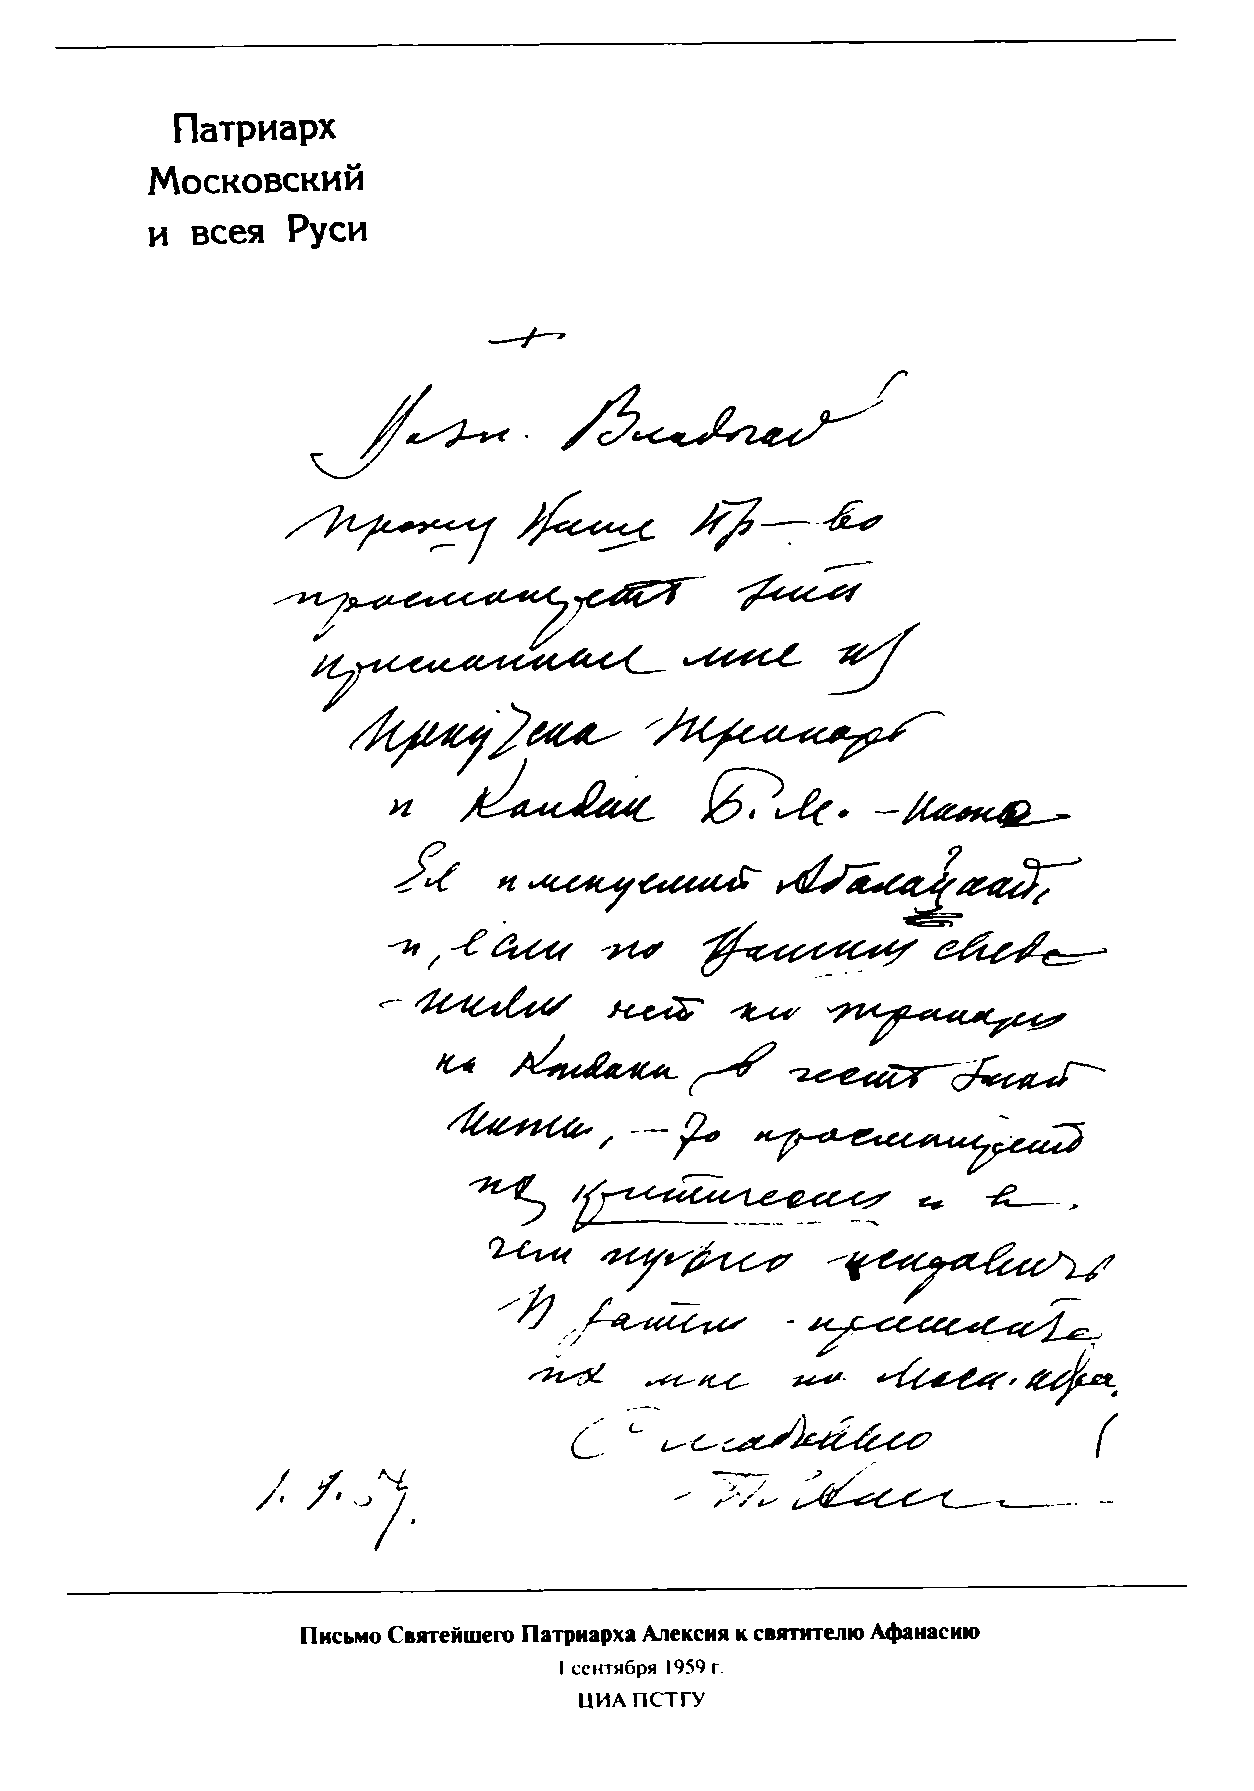 Патриарх
Московский
и всея Руси
+
Владыко
Прошу Ваше Пр–во
просмотреть эти
присланные мне из
Иркутска Тропарь
и Кондак Б. М. –
Ея именуемой Абалацкой,
и, если по Вашим сведе
- ниям нет ни тропаря
ни Кондака в честь этой
иконы, – то просмотреть
их критически и в
чем нужно исправить
И затем прислать
их мне по Моск. адр.
С любовию
П. Алек
1. 9. 59.
Письмо Святейшего Патриарха Алексия к святителю Афанасию
1 сентября 1959 г.
ЦИА ПСТГУ